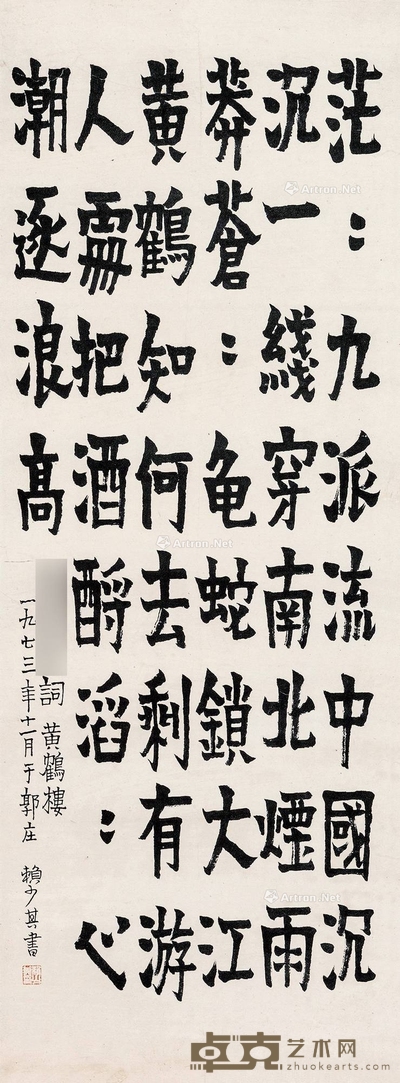 茫：九派流中國沉
沉一綫穿南北煙雨
莽蒼：龟蛇鎖大江
黄鶴知何去剩有游
人處把酒酹滔：心
潮逐浪高
詞 黄鶴樓
一九七三年十一月于郭庄 賴少其書
Artron.Net
Artron.Net
Artron.Net
Artron.Net
Artron.Net
Artron.Net
卓克艺术网
www.zhuokearts.com